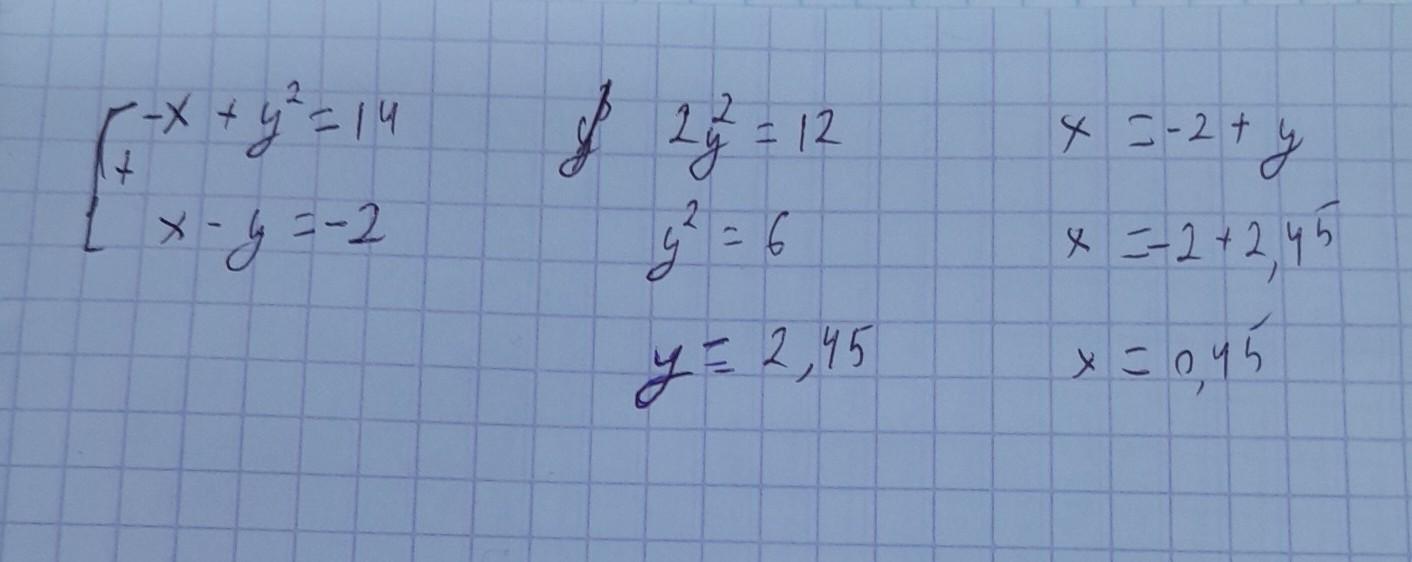 -x + y² = 14
+
x - y = -2
2y² = 12
y² = 6
y = 2,45
x = -2 + y
x = -2 + 2,45
x = 0,45